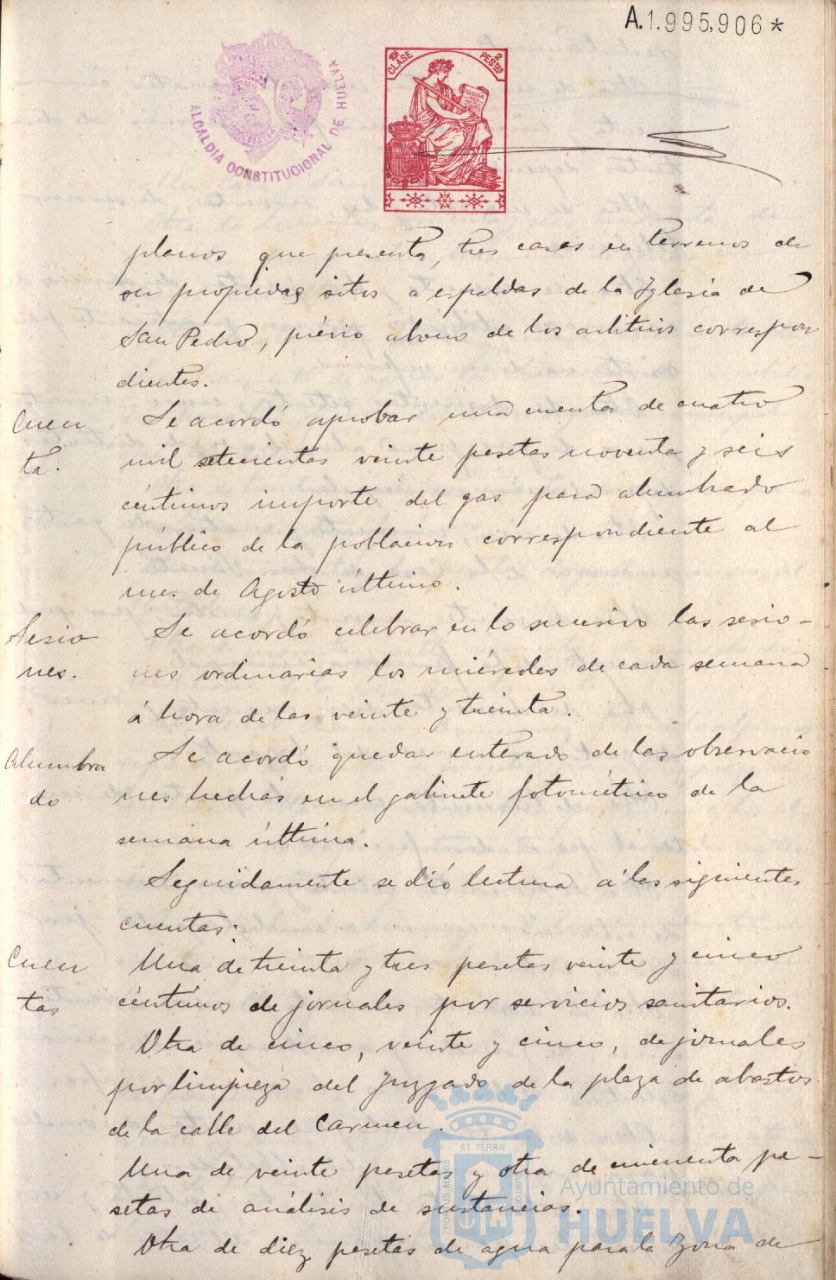 A.1.995,906*
ALCALDIA CONSTITUCIONAL DE HUELVA
10ª CLASE 2 PESETAS
planos que presenta, tres casas en terrenos de
su propiedad sitos a espaldas de la Iglesia de
San Pedro, prévio abono de los arbitrios correspon
dientes.
Cuen
ta.
Se acordó aprobar una cuenta de cuatro
mil setecientas veinte pesetas noventa y seis
céntimos importe del gas para alumbrado
público de la poblacion correspondiente al
mes de Agosto último.
Sesio
nes.
Se acordó celebrar en lo sucesivo las sesio-
nes ordinarias los miércoles de cada semana
á hora de las veinte y treinta.
Alumbra
do
Se acordó quedar enterado de las observacio
nes hechas en el gabinete fotométrico de la
semana última.
Seguidamente se dió lectura á las siguientes
cuentas.
Cuen
tas
Una de treinta y tres pesetas veinte y cinco
céntimos de jornales por servicios sanitarios.
Otra de cinco, veinte y cinco, de jornales
por limpieza del Juzgado de la plaza de abastos
de la calle del Carmen.
Una de veinte pesetas y otra de cincuenta pe-
setas de análisis de sustancias.
Otra de diez pesetas de agua para la zona de
ET TERRÆ
Ayuntamiento de
HUELVA